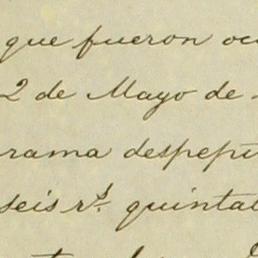 que fueron oc
2 de Mayo de
rama despepi
seis rs. quintal